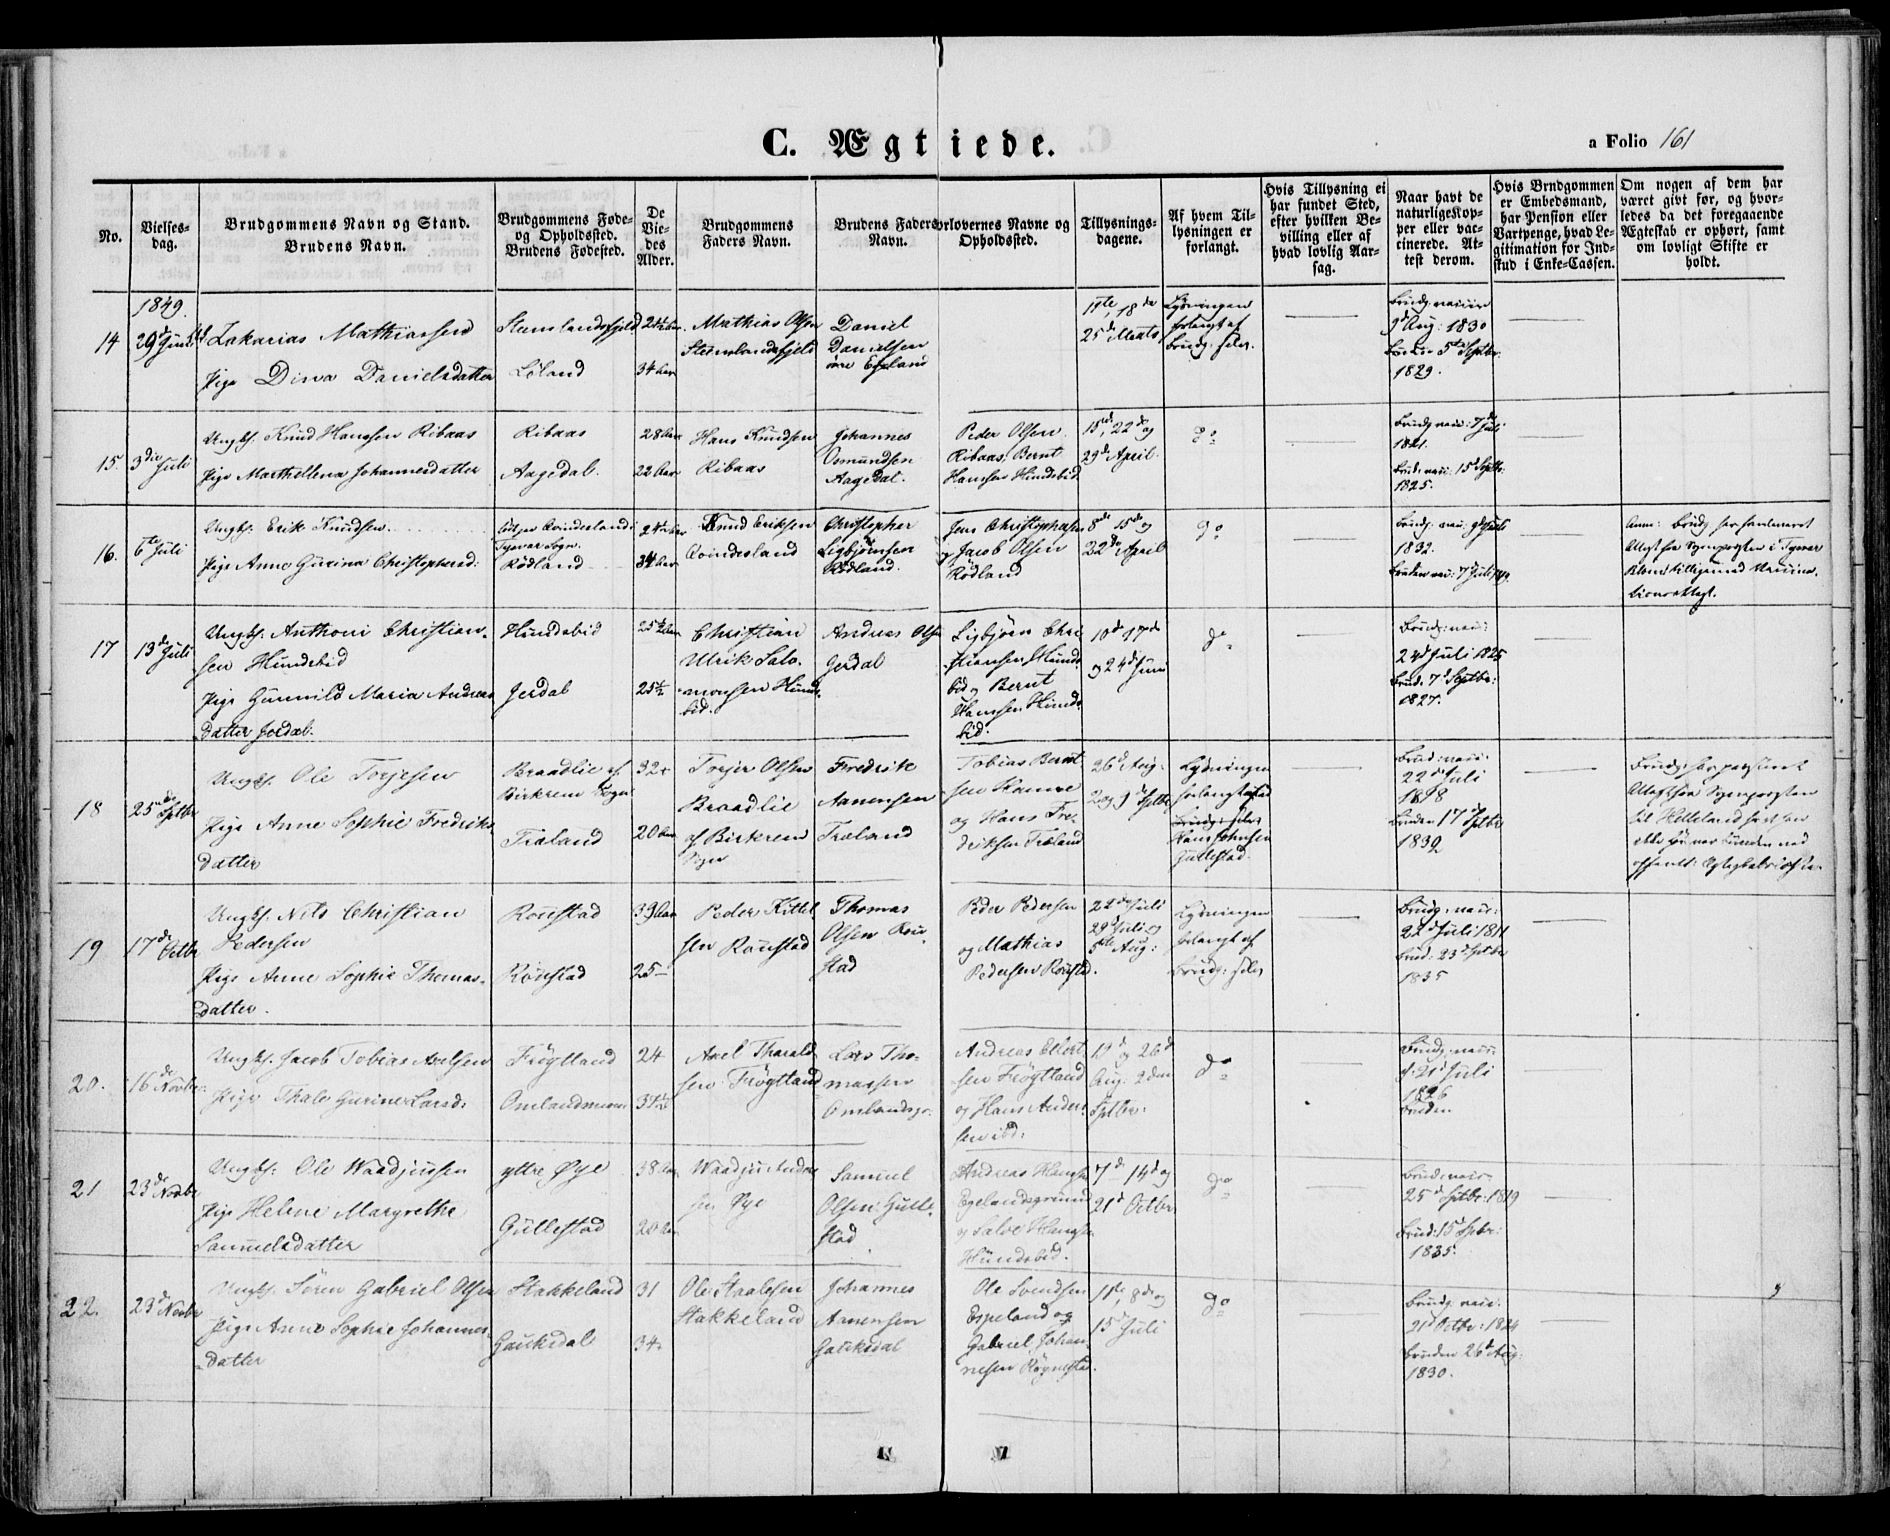 C. Ægtviede.
a Folio 161
No.
Vielses-
dag.
Brudgommens Navn og Stand.
Brudens Navn.
Brudgommens Føde-
og Opholdssted.
Brudens Fødested.
De
Vie-
des
Alder.
Brudgommens
Faders Navn.
Brudens Faders
Navn.
Forlovernes Navne og
Opholdssted.
Tillysnings-
dagene.
Af hvem Til-
lysningen er
forlangt.
Hvis Tillysning ei
har fundet Sted,
efter hvilken Be-
villing eller af
hvad lovlig Aar-
sag.
Naar havt de
naturlige Kop-
per eller vac-
cinerede. At-
test derom.
Hvis Brudgommen
er Embedsmand,
har Pension eller
Vartpenge, hvad Le-
gitimation for Ind-
skud i Enke-Cassen.
Om nogen af dem har
været givt før, og hvor-
ledes da det foregaaende
Ægteskab er ophørt, samt
om lovligt Skifte er
holdt.
1849.
14
29de Juni
Zakarias Mathiassen
Pige Dina Danielsdatter
Steinslandsfjeld
Løland
24½ Aar
34 Aar
Mathias Olsen
Steinslandsfjeld
Daniel
Danielsen
øvre Egeland
11te, 18de
25de Marts
Lysningen
forlangt af
Brudg: selv.
Brudg: vaccin
9d Aug: 1830
Bruden 5te Septbr
1829.
15
3die Juli
Ungk. Knud Hanssen Ribaas
Pige Marthellena Johannesdatter
Ribaas
Aagedal.
28 Aar
22 Aar
Hans Knudsen
Ribaas
Johannes
Osmundsen
Aagedal.
Peder Olsen
Ribaas, Bernt
Hanssen Hundsbid
15de, 22de og
29de April.
do
Brudg vacc: 7d Juli
1821.
Brud. vacc: 15d Septbr.
1825.
16.
6te Juli
Ungk. Erik Knudsen
Pige Anne Gurina Christophersd:
Qvindesland i
Tysvær Sogn.
Rødland
24 Aar
34 Aar
Knud Eriksen
Qvindesland
Christopher
Ligbjørnsen
Rødland.
Jens Christophersen
og Jacob Olsen
Rødland
8de 15de og
22de April
do
Brudg: vacc: 9d Juli
1832.
Bruden vacc: 7d Juli
Anm: Brudg har fremlagt
Attest fra Sognepresten i Tysvær
17
13de Juli
Ungk. Anthoni Christian-
sen Hundsbid
Pige Gunnild Maria Andreas
datter Jerdal.
Hundsbid
Jerdal
25½ Aar
25½
Christian
Ulrik Salo-
monsen Hunds-
bid.
Andreas Olsen
Jerdal
Ligbjørn Chri-
stiansen Hunds-
bid og Bernt
Hanssen Hunds-
bid.
10d 17de
og 24d Juni
do
Brudg: vacc:
24d Juli 1825
Brud. 7d Septbr:
1827.
18
25de Septbr
Ungk. Ole Torjesen
Pige Anne Sophie Fredriks-
datter
Braadlie af
Birkrem Sogn
Træland
32
20 Aar
Torjer Olsen
Braadlie
af Birkrem
Sogn
Fredrik
Aanensen
Træland
Tobias Bernt-
sen Kamre
og Hans Fre-
driksen Træland
26d Aug:
2 og 9d Septbr
Lysningen
forlangt af
Brudg: selv
Hans Johnsen
Gullestad.
Brud: vacc:
22d Juli
1818
Bruden 17d Septbr
1832
19
17de Octbr
Ungk. Nils Christian
Pedersen
Pige Anne Sophie Thomas-
datter.
Rousstad
Rousstad
39 Aar
25
Peder Kittel-
sen Rousstad
Thomas
Olsen Rou-
stad
Peder Pedersen
og Mathias
Pedersen Rousstad.
22de Juli
29d Juli og
5te Aug:
Lysningen
forlangt af
Brudg: selv
Brudg: vacc:
22d Juli 1811
Brud: 23d Septbr
1835
20.
16de Novbr:
Ungk. Jacob Tobias Axelsen
Pige Thale Gurine Larsd:
Frøytland
Omlandsmoen
24
Axel Tharald-
sen Frøytland
Lars Tho-
massen
Omlandsgr:
Andreas Ellert-
sen Frøytland
og Hans Ander-
sen ibd:
19d og 26d
Aug. 2den
Septbr:
do
Brudg: vacc:
d: 21d Juli
1826
Bruden
21
23de Novbr
Ungk: Ole Waadjussen
Pige Helene Margrethe
Samuelsdatter
yttre Øye
Gullestad
38 Aar
20 Aar
Waadju Anders-
sen Øye
Samuel
Olsen Gulle-
stad
Andreas Hanssen
Egelandsgrund
og Salve Hanssen
Hundsbid.
7d 14d og
21d Octbr
do
Brud: vacc:
25d Septbr: 1819
Brud: 15d Septbr:
1835.
22.
23d Novbr
Ungk. Sören Gabriel Olsen
Pige Anne Sophie Johannes-
datter
Stakkeland
Gauksdal
31
34
Ole Staalesen
Stakkeland
Johannes
Aanensen
Gauksdal
Ole Svendsen
Espeland og
Gabriel Johan-
nesen Røynestad.
1ste, 8de og
15d Juli
do
Brudg. vacc:
21d Octbr: 1824
Bruden 26d Aug:
1830.